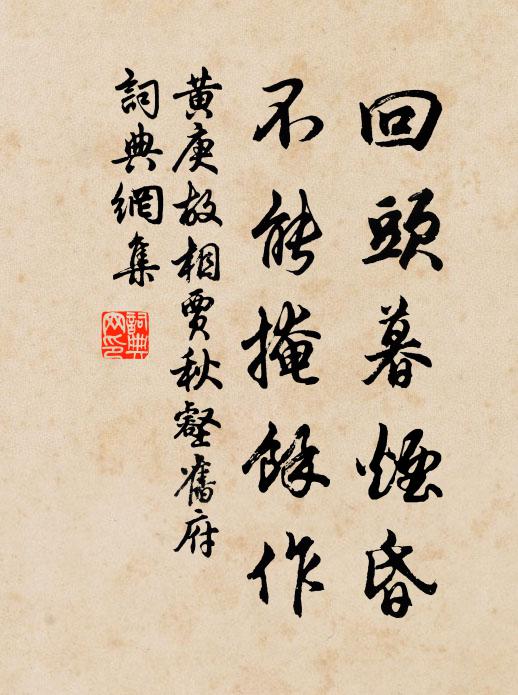 回頭暮煙昏
不能掩餘作
黄庚故相賈秋壑舊府
詞典網集
詞典網印